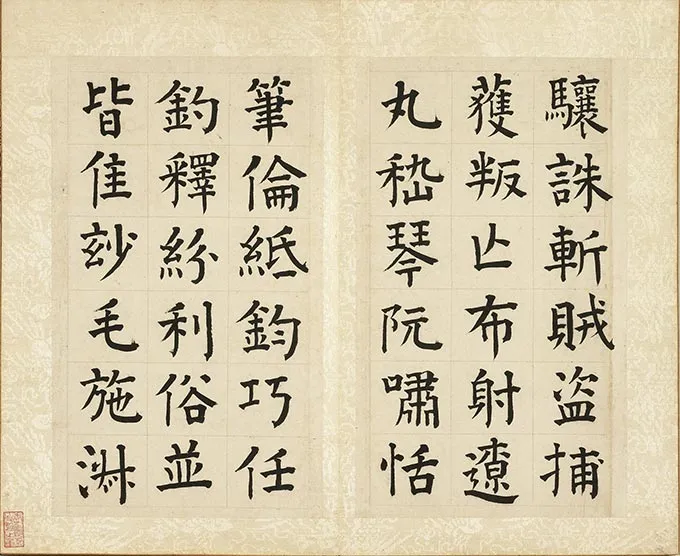 驤誅斬賊盜捕
獲叛亡布射遼
丸嵇琴阮嘯恬
筆倫紙鈞巧任
釣釋紛利俗並
皆佳玅毛施淑